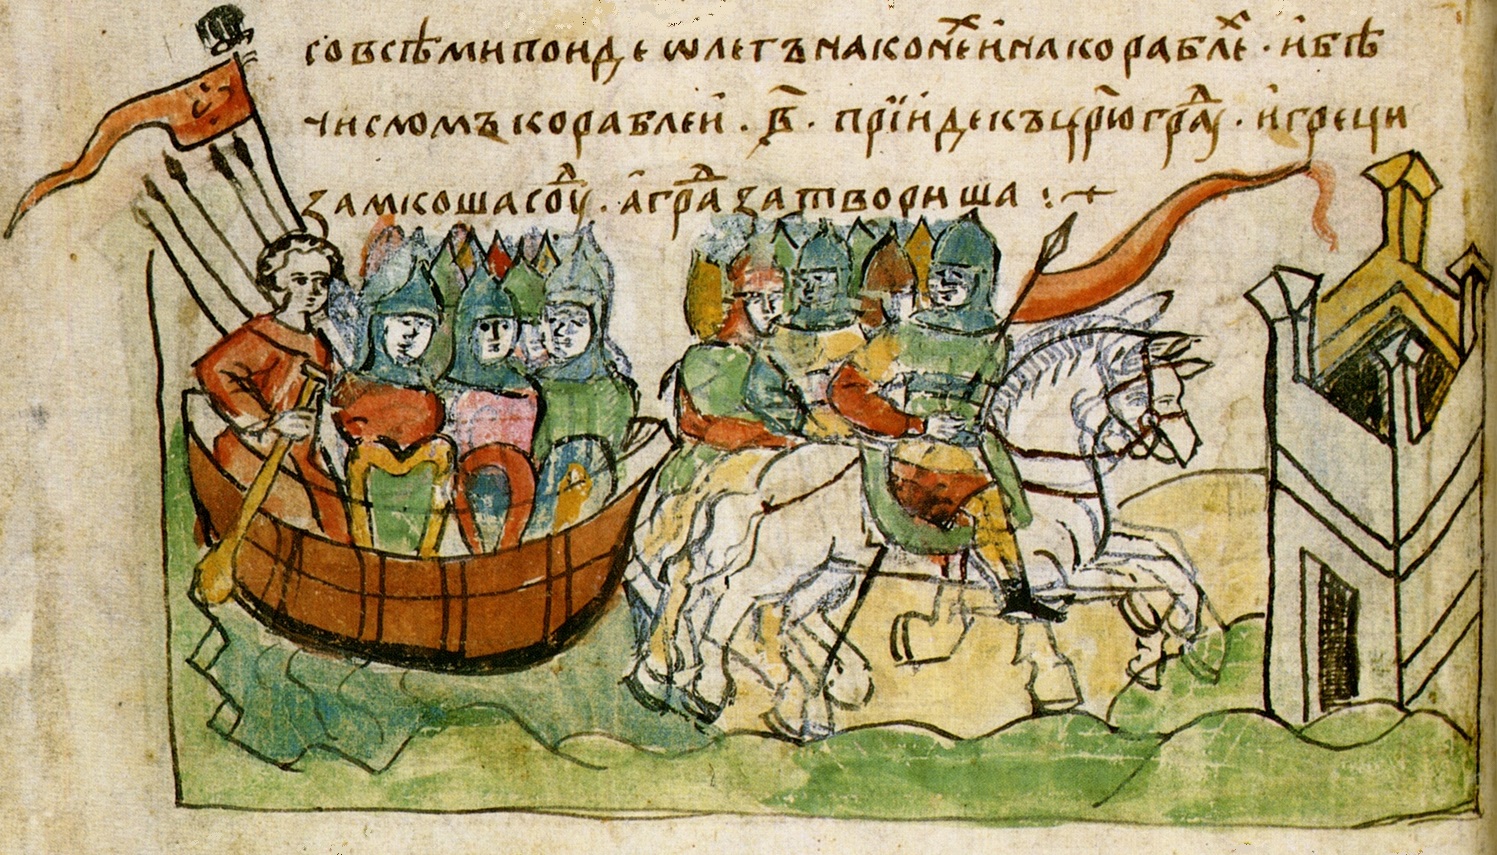 со всѣми поиде ѡлегъ на конех и на кораблех · и бѣ
числомъ кораблеи · в҃ · прїиде къ цр҃югрд҃у · и греци
замкоша сод҃у · а грд҃а затвориша :+